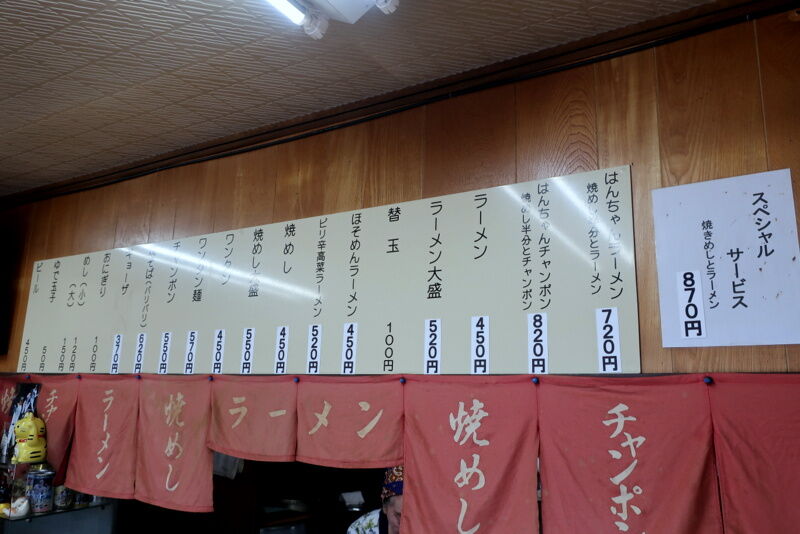 スペシャル
サービス
焼きめしとラーメン
870円
はんちゃんラーメン
焼めし半分とラーメン
720円
はんちゃんチャンポン
焼めし半分とチャンポン
820円
ラーメン
450円
ラーメン大盛
520円
替玉
100円
ほそめんラーメン
450円
ピリ辛高菜ラーメン
520円
焼めし
450円
焼めし大盛
550円
ワンタン
450円
ワンタン麺
570円
チャンポン
550円
そば(パリパリ)
620円
ギョーザ
370円
おにぎり
100円
めし(小)
(大)
120円
150円
ゆで玉子
50円
ビール
450円
チャンポン
焼めし
ラーメン
焼めし
ラーメン
チャ
焼